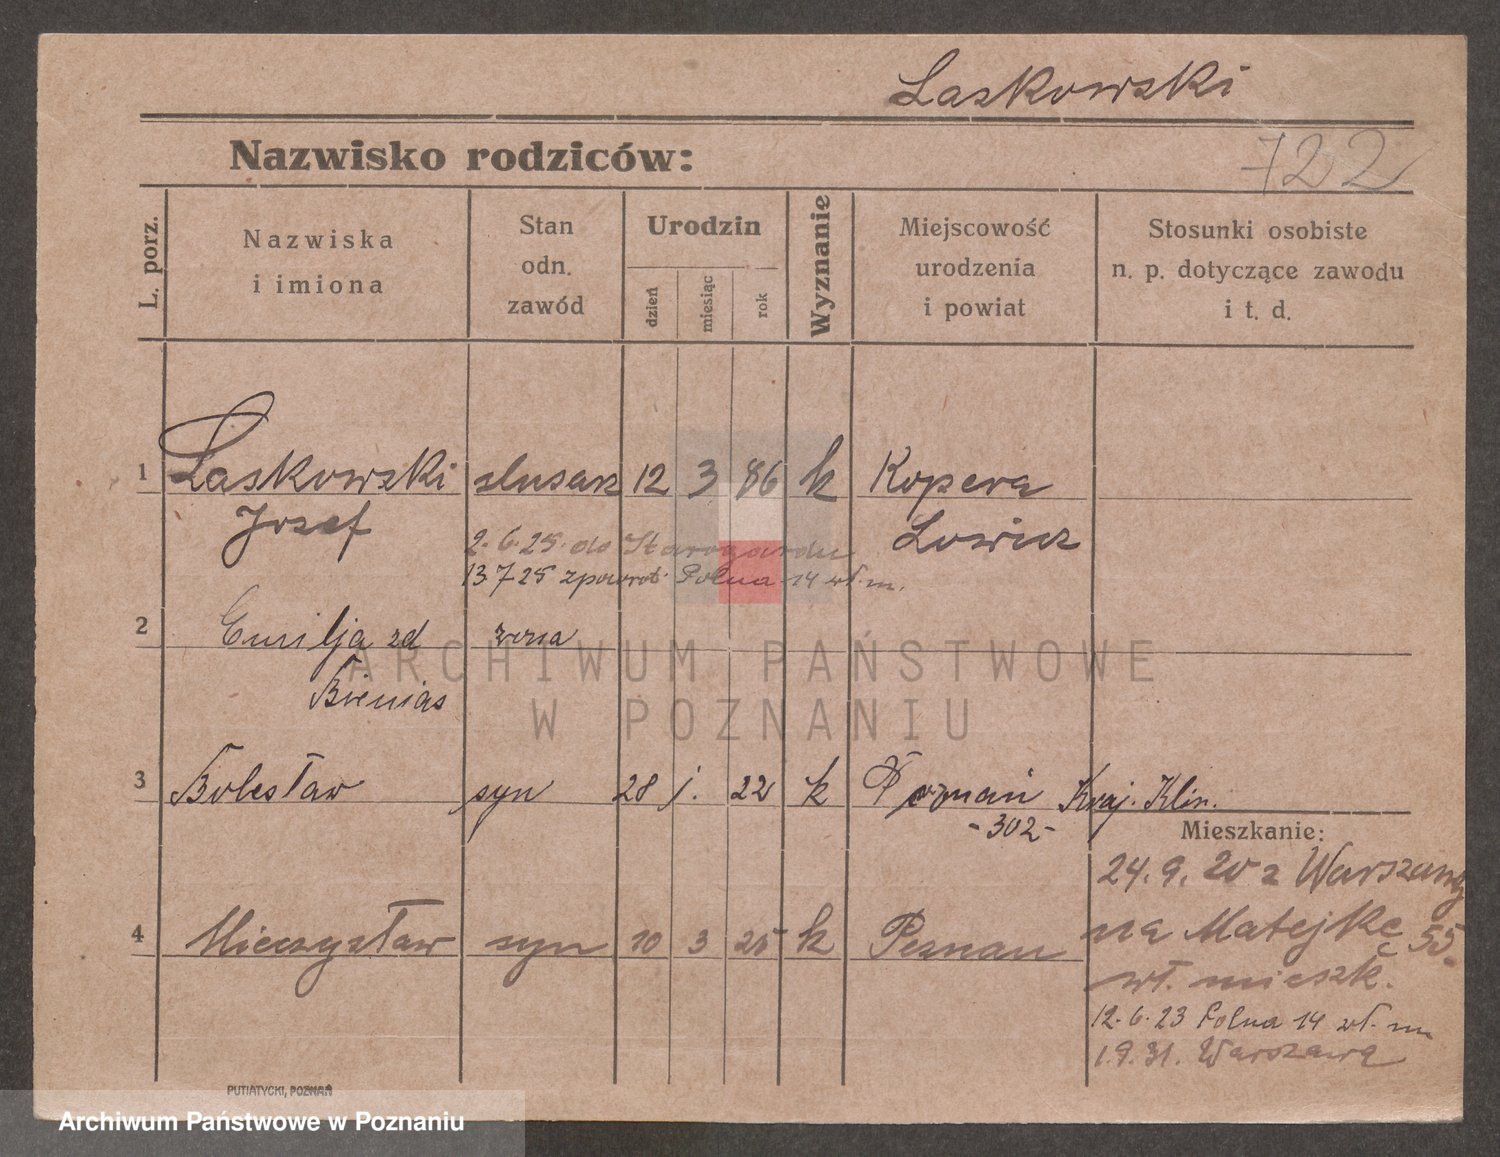 Laskowski
722
Nazwisko rodziców:
L. porz.
Nazwiska
i imiona
Stan
odn.
zawód
Urodzin
dzień
miesiąc
rok
Wyznanie
Miejscowość
urodzenia
i powiat
Stosunki osobiste
n. p. dotyczące zawodu
i t. d.
1 Laskowski slusarz 12 3 86 k Kopera
Jozef Lowicz
2.6.25. do Starogardu
13.7 25 zpowrot Polna 14 wł. m.
2 Emilja zd zona
Bienias
3 Bolesław syn 28 j. 22 k Poznań Kraj. Klin.
-302-
Mieszkanie:
24. 9. 20 z Warszawy
4 Mieczysław syn 10 3 25 k Poznan
na Matejkę 55.
wł. mieszk.
12.6.23 Polna 14 wł. m
1.9.31. Warszawa
PUTIATYCKI, POZNAŃ
ARCHIWUM PAŃSTWOWE
W POZNANIU
Archiwum Państwowe w Poznaniu